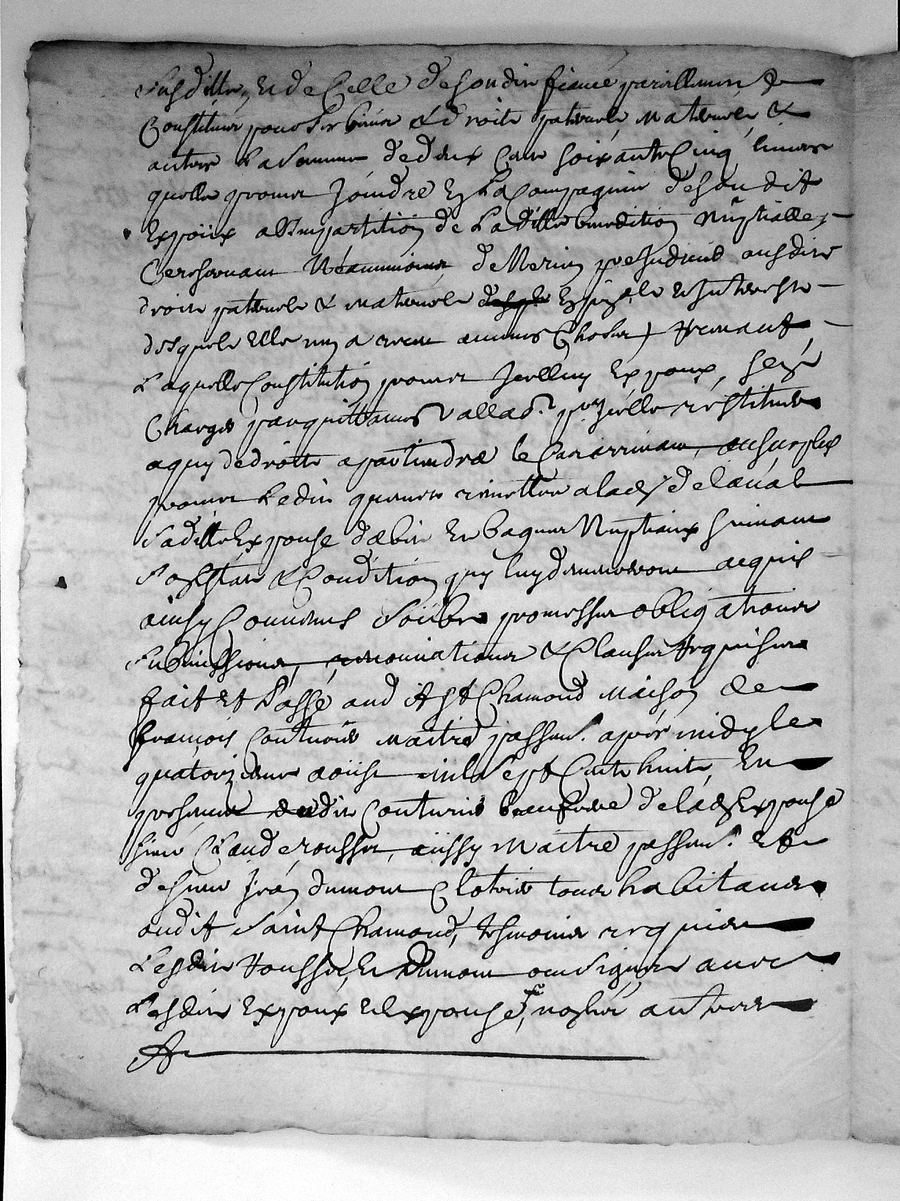 Susditte, et de Celle de son dit fiancé pareillement se
Constitue pour ses biens & droits paternels maternels &
autres La somme de deux cent soixante Cinq livres
quelle promet Joindre En La Compagnie de son dit
Expoux a l'Impartition de La ditte benediction Nuptialle,
Ce reservant Neanmoins de Merien prejudicié ausdits
droits paternels & maternels Esquels et
desquels Elle n'y a receu aucunes Choses) venant
Laquelle Constitution promet Jcelluy Expoux,
Charger par quittances Vallad. pour icelle restituer
a quy de droits apartiendra le Cas arrivant, au surplus
promet Ledit remettre a lad. de laval
Saditte Expouse d'abits Et bagues Nuptiaux suivant
Son Estat & Condition quy luy demeureront acquis
ainsy Convenus Soubs promesses obligations
Submissions, renonciations & Clauses requises
fait Et Passé aud it St Chamond Maison de
françois Couturié Maitre passem. aprés midy le
quatorzieme aoust mil Sept Cents huits, En
presence dudit Couturié beaufrere de lad. Expouse
sieur Claude rousset, aussy Maitre passem. Et
de sieur Jean dumont Clotrier tous habitans
audit Saint Chamond, tesmoins requis
Lesdits rousset, Et Dumont ont signés avec
Lesdits Expoux Et Expouse, non les autres